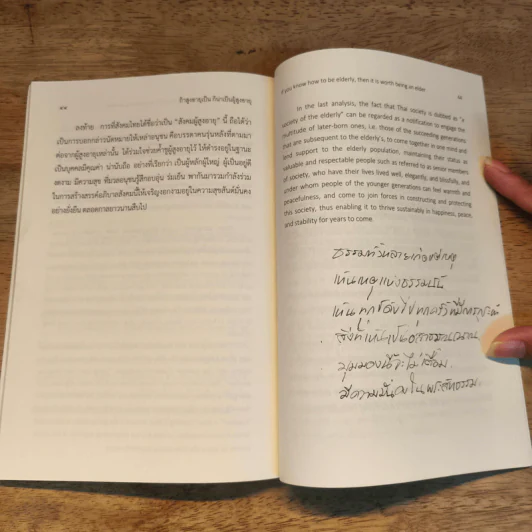 ๔๔
ถ้าสูงอายุเป็น ก็น่าเป็นผู้สูงอายุ
ลงท้าย การที่สังคมไทยได้ชื่อว่าเป็น “สังคมผู้สูงอายุ” นี้ ถือได้ว่า
เป็นการบอกกล่าวนัดหมายให้เหล่าอนุชน คือบรรดาคนรุ่นหลังที่ตามมา
ต่อจากผู้สูงอายุเหล่านั้น ได้ร่วมใจช่วยค้ำชูผู้สูงอายุไว้ ให้ดำรงอยู่ในฐานะ
เป็นบุคคลมีคุณค่า น่านับถือ อย่างที่เรียกว่า เป็นผู้หลักผู้ใหญ่ ผู้เป็นอยู่ดี
งดงาม มีความสุข ที่มวลอนุชนรู้สึกอบอุ่น ร่มเย็น พากันมารวมกำลังร่วม
ในการสร้างสรรค์อภิบาลสังคมนี้ให้เจริญงอกงามอยู่ในความสุขสันต์มั่นคง
อย่างยั่งยืน ตลอดกาลยาวนานสืบไป
If you know how to be elderly, then it is worth being an elder
In the last analysis, the fact that Thai society is dubbed as “a
society of the elderly” can be regarded as a notification to engage the
multitude of later-born ones, i.e. those of the succeeding generations
that are subsequent to the elderly's, to come together in one mind and
lend support to the elderly populace, maintaining their status as
valuable and respectable people such as referred to as senior members
of society, who have their lives lived well, elegantly, and blissfully, and
under whom people of the younger generations can feel warmth and
peacefulness, and come to join forces in constructing and protecting
this society, thus enabling it to thrive sustainably in happiness, peace,
and stability for years to come.
ธรรมทั้งหลายเกิดแต่เหตุ
เห็นเหตุแห่งธรรมนั้น
เห็นทุกข์ดับไป
สิ่งที่เห็นเป็น
มุมมองนี้จะไม่เสื่อม
มีความมั่นคงในพระสัทธรรม